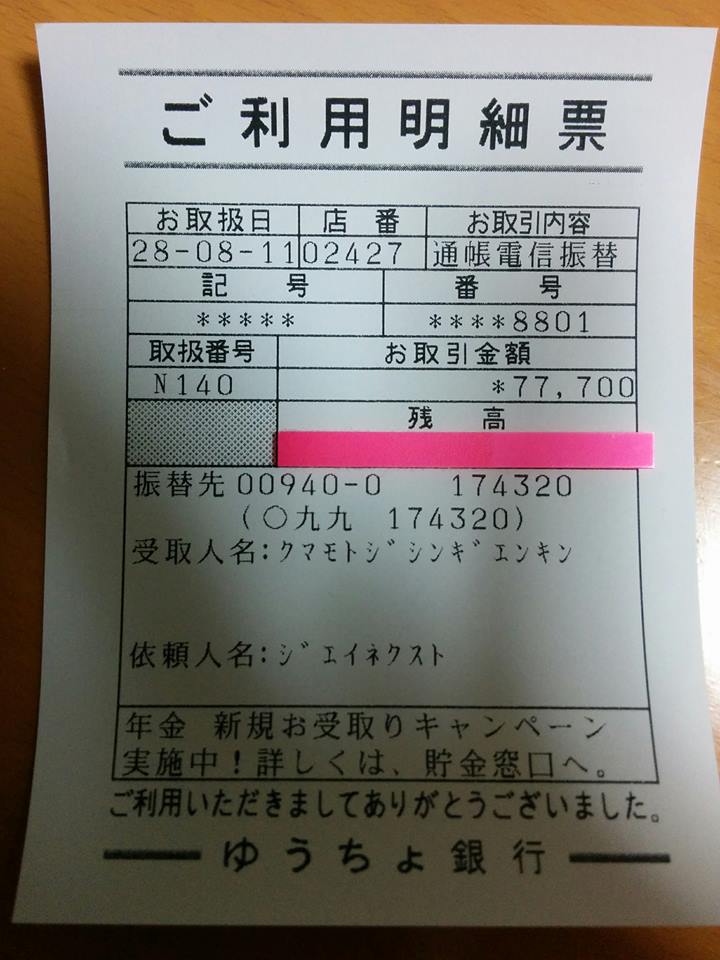 ご利用明細票
お取扱日 店番 お取引内容
28-08-11 02427 通帳電信振替
記号 番号
***** ****8801
取扱番号 お取引金額
N140 *77,700
残高
振替先 00940-0 174320
(〇九九 174320)
受取人名:クマモトジシンギエンキン
依頼人名:ジエイネクスト
年金 新規お受取りキャンペーン
実施中!詳しくは、貯金窓口へ。
ご利用いただきましてありがとうございました。
ゆうちょ銀行